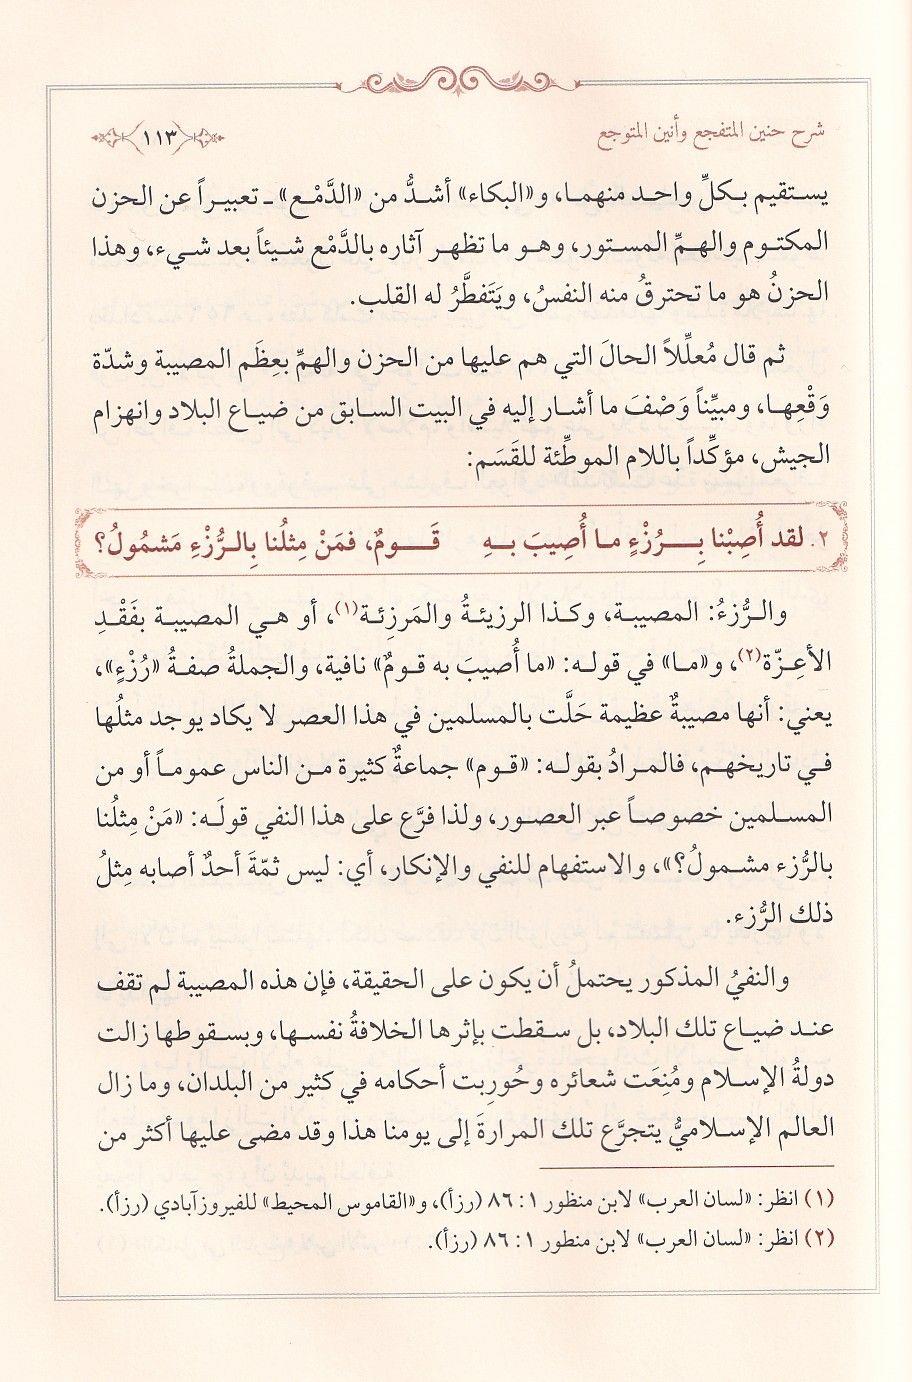 شرح حنين المتفجع وأنين المتوجع
١١٣
يستقيم بكلِّ واحد منهما، و«البكاء» أشدُّ من «الدَّمْع» ـ تعبيراً عن الحزن
المكتوم والهمِّ المستور، وهو ما تظهر آثاره بالدَّمْع شيئاً بعد شيء، وهذا
الحزنُ هو ما تحترقُ منه النفسُ، ويَتَفطَّرُ له القلب.
ثم قال مُعلِّلاً الحالَ التي هم عليها من الحزن والهمِّ بعِظَم المصيبة وشدّة
وَقْعِها، ومبيِّناً وَصْفَ ما أشار إليه في البيت السابق من ضياع البلاد وانهزام
الجيش، مؤكِّداً باللام الموطِّئة للقَسَم:
٢. لقد أُصِبْنا بِرُزْءٍ ما أُصِيبَ بهِ قَومٌ، فمَنْ مِثلُنا بِالرُّزْءِ مَشمُولُ؟
والرُّزءُ: المصيبة، وكذا الرزيئةُ والمَرزِئة(١)، أو هي المصيبة بفَقْدِ
الأعِزّة(٢)، و«ما» في قوله: «ما أُصيبَ به قومٌ» نافية، والجملةُ صفةُ «رُزْءٍ»،
يعني: أنها مصيبةٌ عظيمة حَلَّت بالمسلمين في هذا العصر لا يكاد يوجد مثلُها
في تاريخهم، فالمرادُ بقوله: «قوم» جماعةٌ كثيرة من الناس عموماً أو من
المسلمين خصوصاً عبر العصور، ولذا فرَّع على هذا النفي قولَه: «مَنْ مِثلُنا
بالرُّزء مشمولُ؟»، والاستفهام للنفي والإنكار، أي: ليس ثمّةَ أحدٌ أصابه مِثلُ
ذلك الرُّزء.
والنفيُ المذكور يحتملُ أن يكون على الحقيقة، فإن هذه المصيبة لم تقف
عند ضياع تلك البلاد، بل سقطت بإثرها الخلافةُ نفسها، وبسقوطها زالت
دولةُ الإسلام ومُنِعَت شعائره وحُورِبت أحكامه في كثير من البلدان، وما زال
العالم الإسلاميُّ يتجرَّع تلك المرارةَ إلى يومنا هذا وقد مضى عليها أكثر من
(١) انظر: «لسان العرب» لابن منظور ١: ٨٦ (رزأ)، و«القاموس المحيط» للفيروزآبادي (رزأ).
(٢) انظر: «لسان العرب» لابن منطور ١: ٨٦ (رزأ).